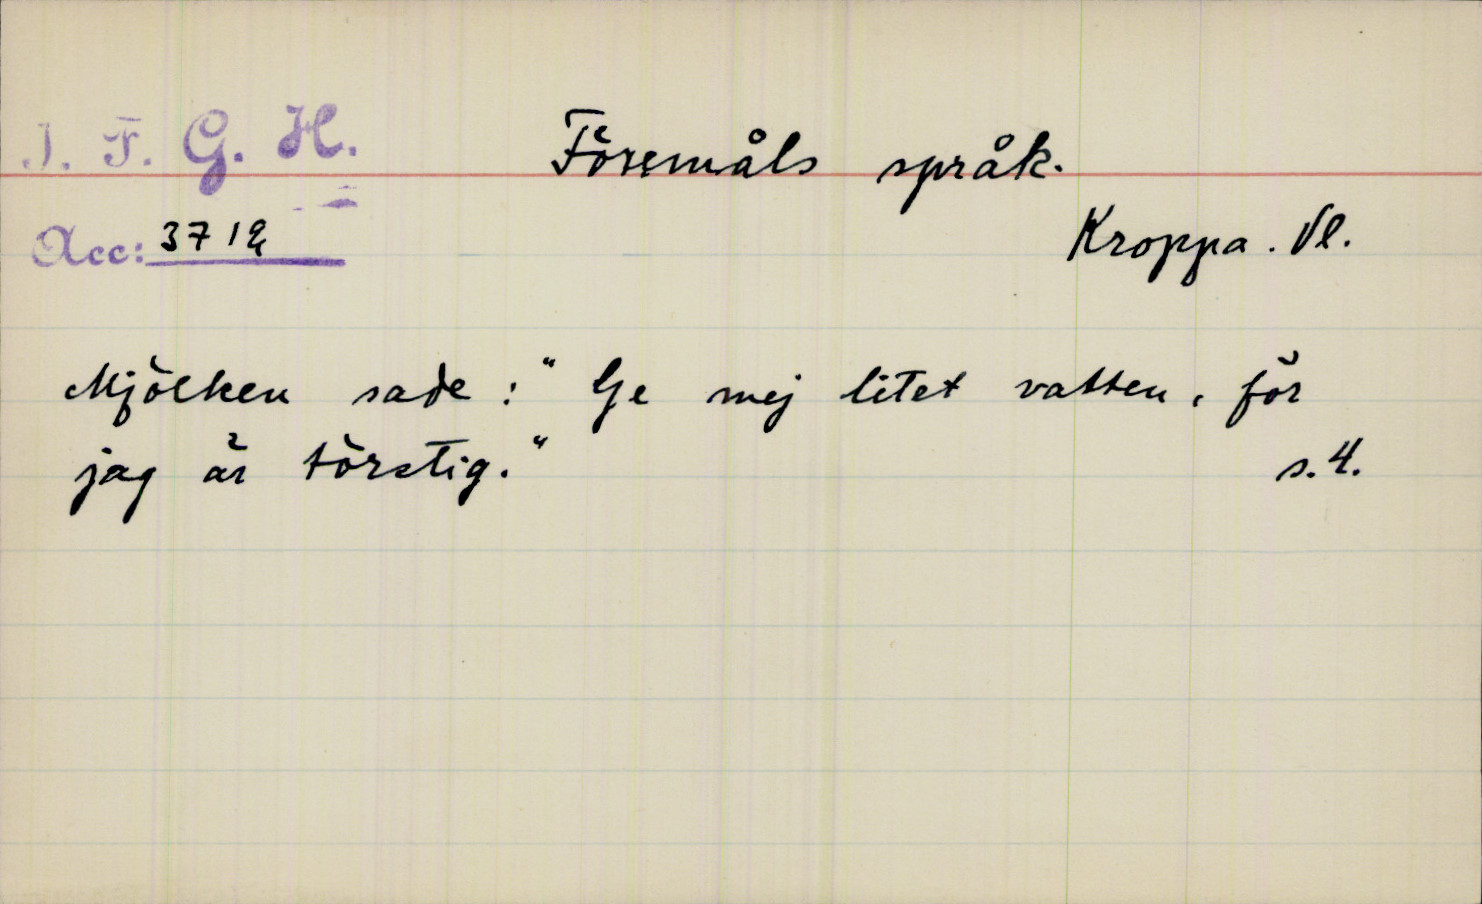 I. F. G. H.
Föremåls språk.
Acc: 3712
Kroppa. Vl.
Mjölken sade: "Ge mej litet vatten, för
jag är törstig."
s. 4.